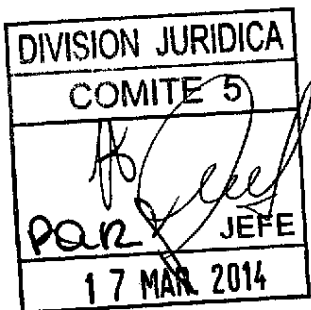 DIVISION JURIDICA
COMITE 5
por
JEFE
17 MAR. 2014